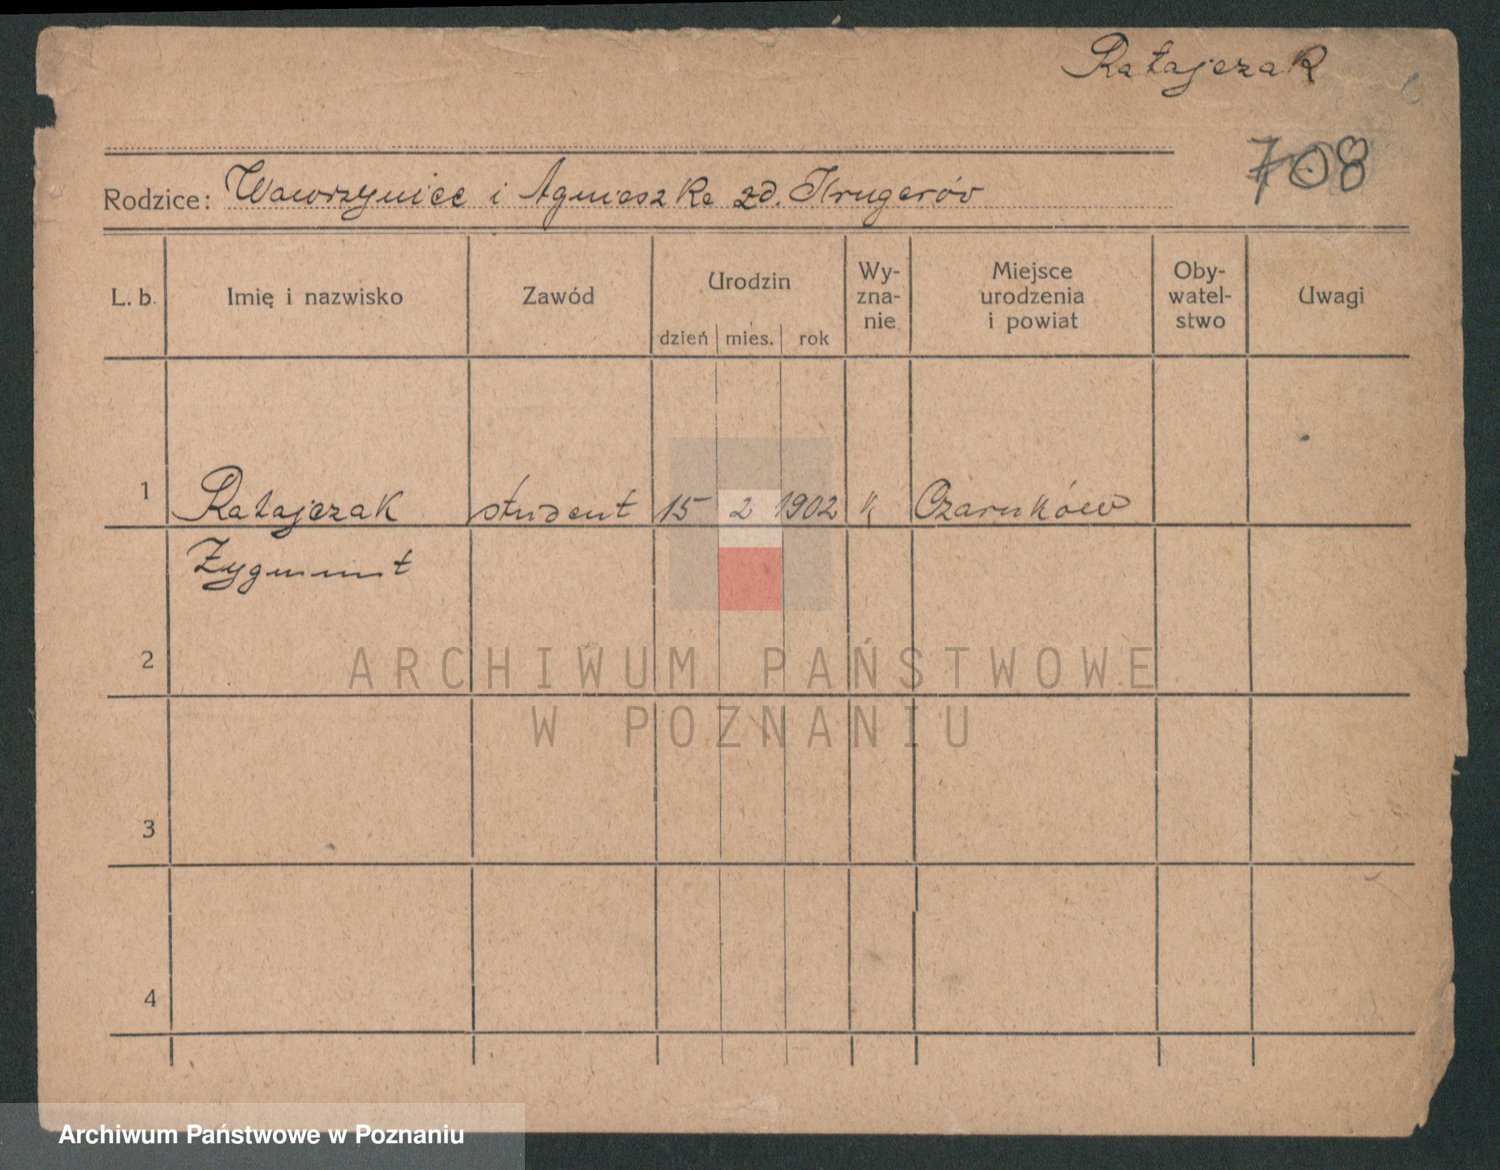 Ratajczak
708
Rodzice: Wawrzyniec i Agnieszka zd. Krugerów
L. b. Imię i nazwisko Zawód Urodzin dzień mies. rok Wy-zna-nie Miejsce urodzenia i powiat Oby-watel-stwo Uwagi
1 Ratajczak student 15 2 1902 k Czarnków
Zygmunt
2
ARCHIWUM PAŃSTWOWE
W POZNANIU
3
4
Archiwum Państwowe w Poznaniu